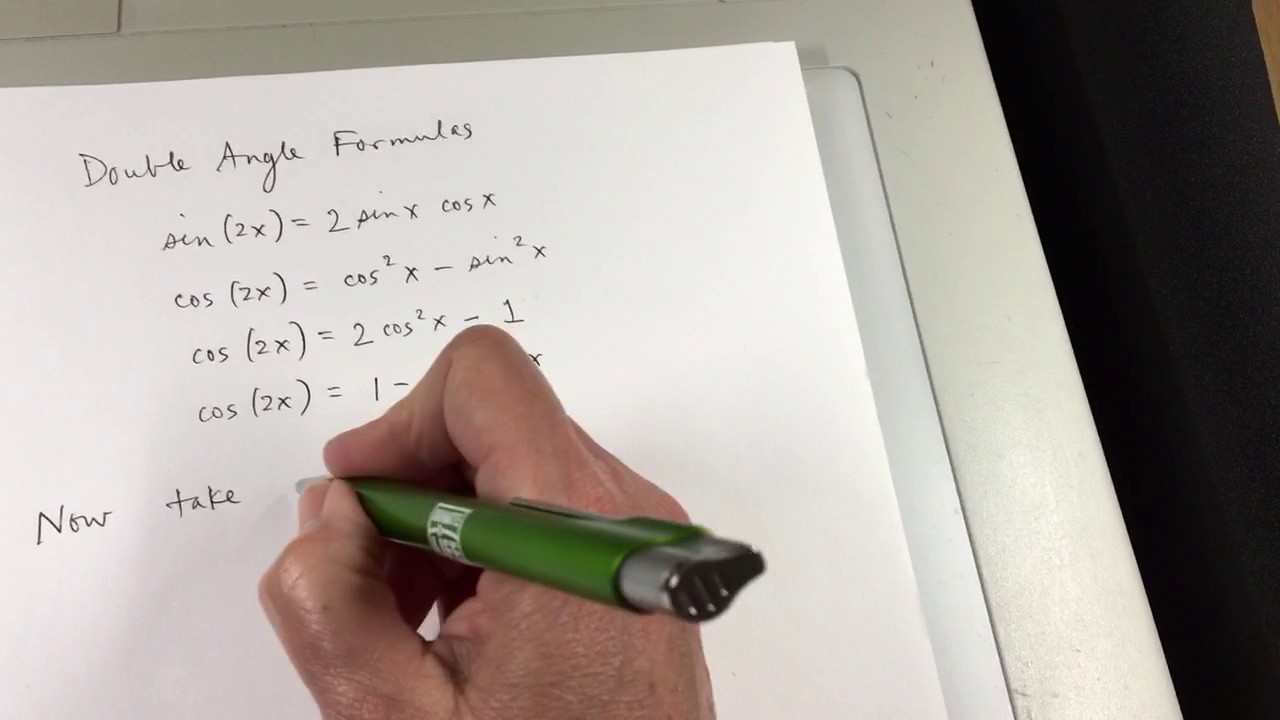 Double Angle Formulas
sin (2x) = 2 sin x cos x
cos (2x) = cos² x - sin² x
cos (2x) = 2 cos² x - 1
cos (2x) = 1 - x
Now take